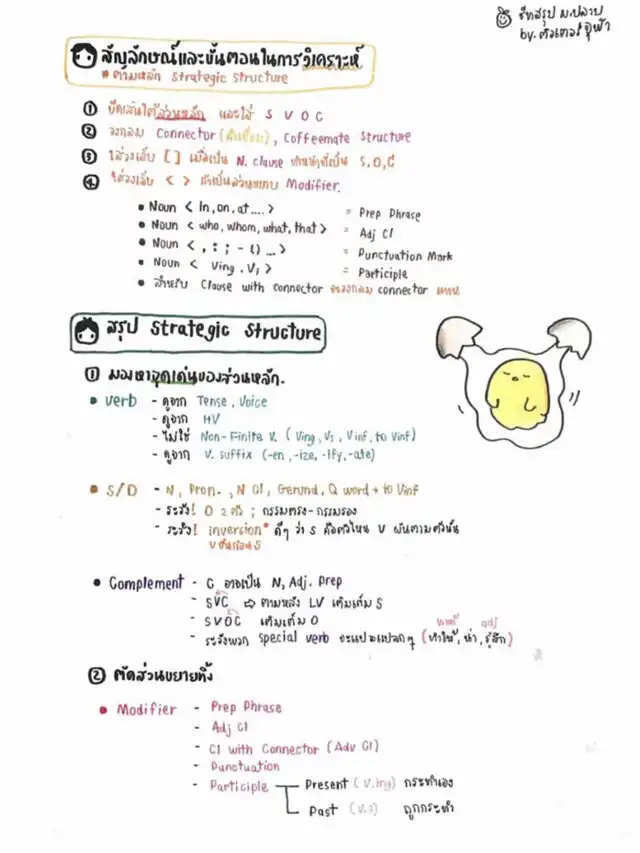 ชีทสรุป ม.ปลาย
by. ติวเตอร์จุฬา
สัญลักษณ์และขั้นตอนในการวิเคราะห์
# ตามหลัก Strategic Structure
① ขีดเส้นใต้ส่วนหลัก และใส่ S V O C
② วงกลม Connector (ตัวเชื่อม), Coffeemate Structure
③ ใส่วงเล็บ [ ] เมื่อเป็น N. clause ทำหน้าที่เป็น S,O,C
④ ใส่วงเล็บ < > ถ้าเป็นส่วนขยาย Modifier.
• Noun < in, on, at .... > = Prep Phrase
• Noun < who, whom, what, that > = Adj Cl
• Noun < , : ; - () ...> = Punctuation Mark
• Noun < Ving, V3 > = Participle
• สำหรับ Clause with connector จะวงกลม connector แทน
สรุป Strategic Structure
① มองหาจุดเด่นของส่วนหลัก.
• verb - ดูจาก Tense, Voice
- ดูจาก HV
- ไม่ใช่ Non-Finite V. (Ving, V3, Vinf, to Vinf)
- ดูจาก V. suffix (-en, -ize, -ify, -ate)
• S/O - N, Pron., N Cl, Gerund, Q word + to Vinf
- ระวัง! O 2 ตัว ; กรรมตรง-กรรมรอง
- ระวัง! inversion* ดีๆ ว่า S คือตัวไหน V ผันตามตัวนั้น
V ขึ้นก่อน S
• Complement - C อาจเป็น N, Adj. Prep
- SVC ⇨ ตามหลัง LV เติมเต็ม S
- SVOC เติมเต็ม O
- ระวังพวก special verb จะแปลแปลกๆ (ทำให้, น่า, รู้สึก)
adj
② ตัดส่วนขยายทิ้ง
• Modifier - Prep Phrase
- Adj Cl
- Cl with Connector (Adv Cl)
- Punctuation
- Participle Present (V.ing) กระทำเอง
Past (V.3) ถูกกระทำ